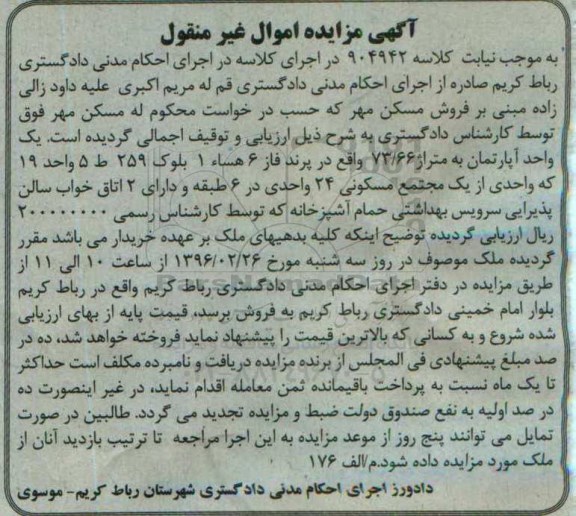 آگهی مزایده اموال غیر منقول
به موجب نیابت کلاسه ۹۰۴۹۴۲ در اجرای کلاسه در اجرای احکام مدنی دادگستری
رباط کریم صادره از اجرای احکام مدنی دادگستری قم له مریم اکبری علیه داود زالی
زاده مبنی بر فروش مسکن مهر که حسب در خواست محکوم له مسکن مهر فوق
توسط کارشناس دادگستری به شرح ذیل ارزیابی و توقیف اجمالی گردیده است. یک
واحد آپارتمان به متراژ ۷۳/۶۶ واقع در پرند فاز ۶ هساء ۱ بلوک ۲۵۹ ط ۵ واحد ۱۹
که واحدی از یک مجتمع مسکونی ۲۴ واحدی در ۶ طبقه و دارای ۲ اتاق خواب سالن
پذیرایی سرویس بهداشتی حمام آشپزخانه که توسط کارشناس رسمی ۲۰۰۰۰۰۰۰۰
ریال ارزیابی گردیده توضیح اینکه کلیه بدهیهای ملک بر عهده خریدار می باشد مقرر
گردیده ملک موصوف در روز سه شنبه مورخ ۱۳۹۶/۰۲/۲۶ از ساعت ۱۰ الی ۱۱ از
طریق مزایده در دفتر اجرای احکام مدنی دادگستری رباط کریم واقع در رباط کریم
بلوار امام خمینی دادگستری رباط کریم به فروش برسد، قیمت پایه از بهای ارزیابی
شده شروع و به کسانی که بالاترین قیمت را پیشنهاد نماید فروخته خواهد شد، ده در
صد مبلغ پیشنهادی فی المجلس از برنده مزایده دریافت و نامبرده مکلف است حداکثر
تا یک ماه نسبت به پرداخت باقیمانده ثمن معامله اقدام نماید، در غیر اینصورت ده
در صد اولیه به نفع صندوق دولت ضبط و مزایده تجدید می گردد. طالبین در صورت
تمایل می توانند پنج روز از موعد مزایده به این اجرا مراجعه تا ترتیب بازدید آنان از
ملک مورد مزایده داده شود.م/الف ۱۷۶
دادورز اجرای احکام مدنی دادگستری شهرستان رباط کریم- موسوی